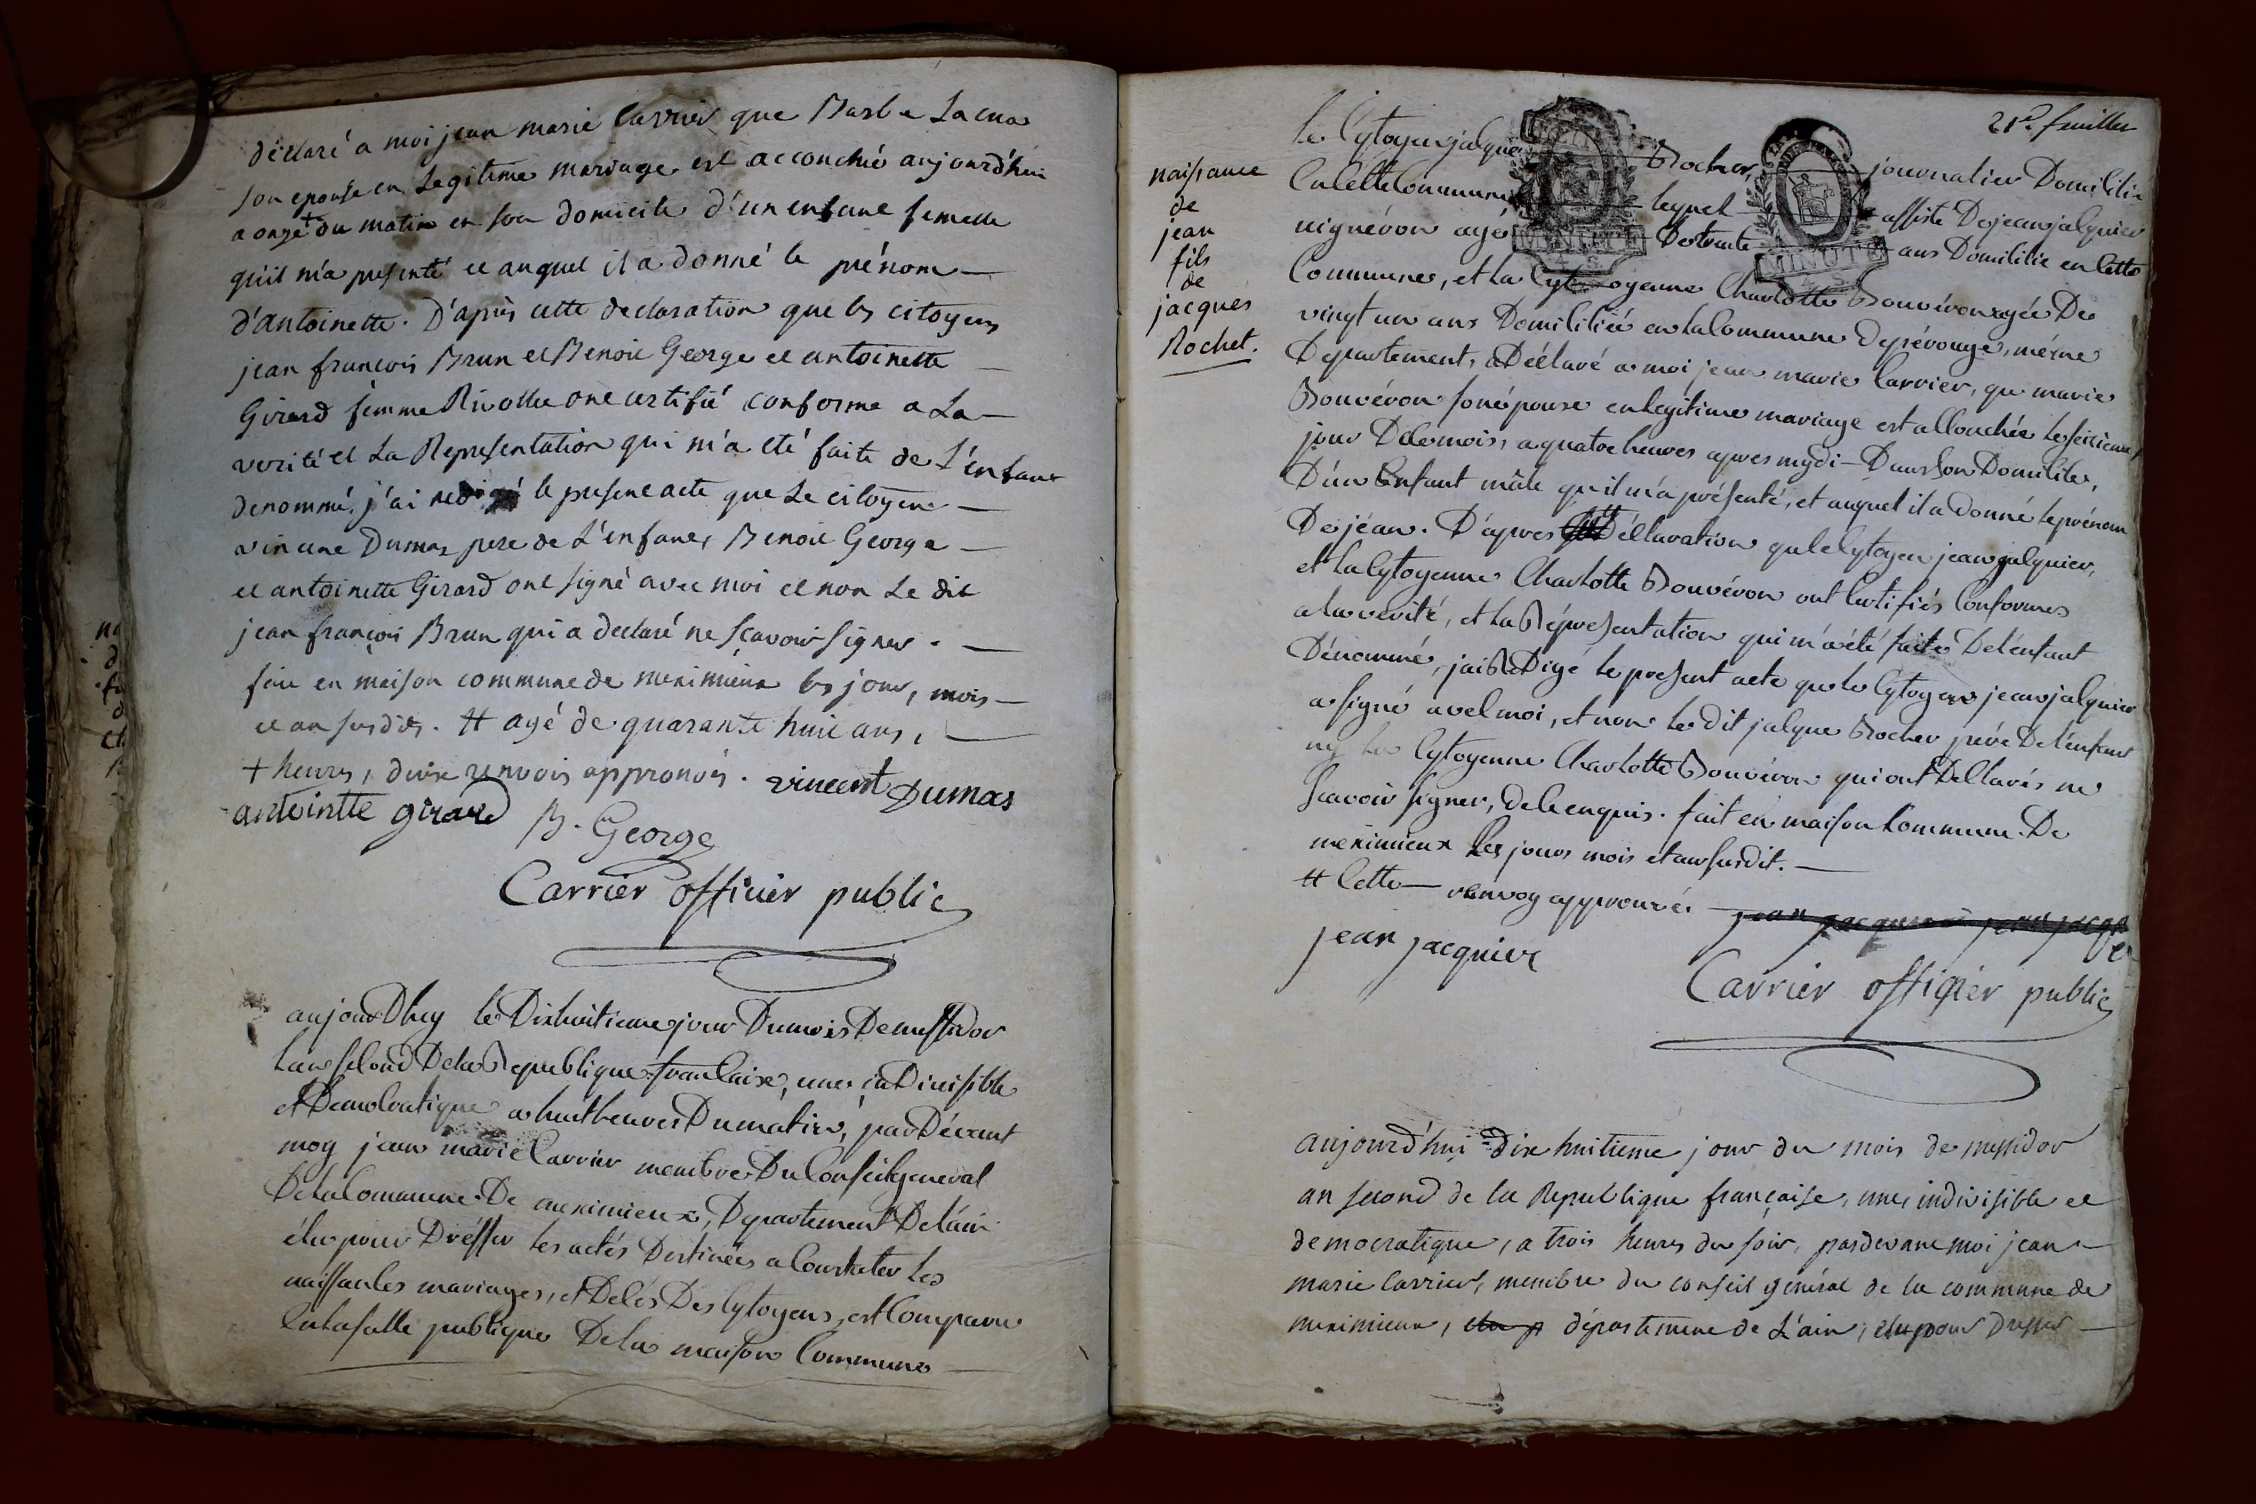 déclaré a moi jean marie Carrier que Barbe Lacua
son epouse en Legitime mariage est accouchée aujourd'hui
a onze + du matin en son domicile d'un enfant femelle
qu'il m'a presenté et auquel il a donné le prénom —
d'antoinette. D'après cette declaration que les citoyens
jean françois Brun et Benoit George et antoinette —
Girard femme Rivollet ont certifié conforme a La —
verité et La Representation qui m'a eté faite de L'enfant
denommé, j'ai redigé le present acte que Le citoyen —
vincent Dumas pere de L'enfant, Benoit George —
et antoinette Girard ont signé avec moi et non Le dit
jean françois Brun qui a declaré ne scavoir signer. —
fait en maison commune de meximieux les jour, mois —
et an susdits. # agé de quarante huit ans, —
+ heures, deux renvois approuvés. vincent Dumas
antointte girard B. George
Carrier officier public
aujourDhuy le Dixhuitieme jour Dumois Demessidor
Lan second Dela Republique francaise, une, inDivisible
et Democratique a huit heures Dumatin, parDevant
moy jean marie Carrier membre Du Conseil general
Dela Commune De meximieux, Departement Delain
élu pour Dresser les actes Destinées a Constater les
naissances mariages, et Decés Des Cytoyens, est Comparu
en la salle publique Dela maison Commune —
21e. feuillet
naissance
de
jean
fils
de
jacques
Rochet.
le Cytoyen jacque Rocher, journalier Domicilié
en cette Commune lequel assisté De jean jacquier
vigneron agé De trente ans Domicilié en Cette
Commune, et la Cytoyenne Charlotte Bouvéron agée De
vingt un ans Domiciliée en la Commune De pérouge, même
Departement, a Déclaré a moi jean marie Carrier, que marie
Bouvéron son épouse en legitime mariage est accouchée le seizieme
jour De ce mois, a quatre heures apres mydi — Dans son Domicile,
D'un Enfant mâle qu'il m'a présenté, et auquel il a donné le prénom
De jéan. D'apres Déclaration que le Cytoyen jean jacquier,
et la Cytoyenne Charlotte Bouvéron ont Certifiés Conformes
a la verité, et la Répresentation qui m'a été faite De l'enfant
Dénommé, jai ReDigé le present acte que le Cytoyen jean jacquier
a signé avec moi, et non le dit jacque Rocher pére De l'enfant
ny la Cytoyenne Charlotte Bouvéron qui ont Declarés ne
scavoir signer, de ce enquis. fait en maison Commune De
meximieux les jours mois et an susdit. —
# Cette — renvoy approuvé. jean jacquier jean jacqu
er
jean jacquier
Carrier officier public
aujourd'hui dix huitieme jour du mois de messidor
an second de la Republique française, une, indivisible et
democratique, a trois heures du soir, pardevant moi jean —
marie Carrier, membre du conseil général de la commune de
meximieux, élu p département de L'ain, élu pour Dresser —